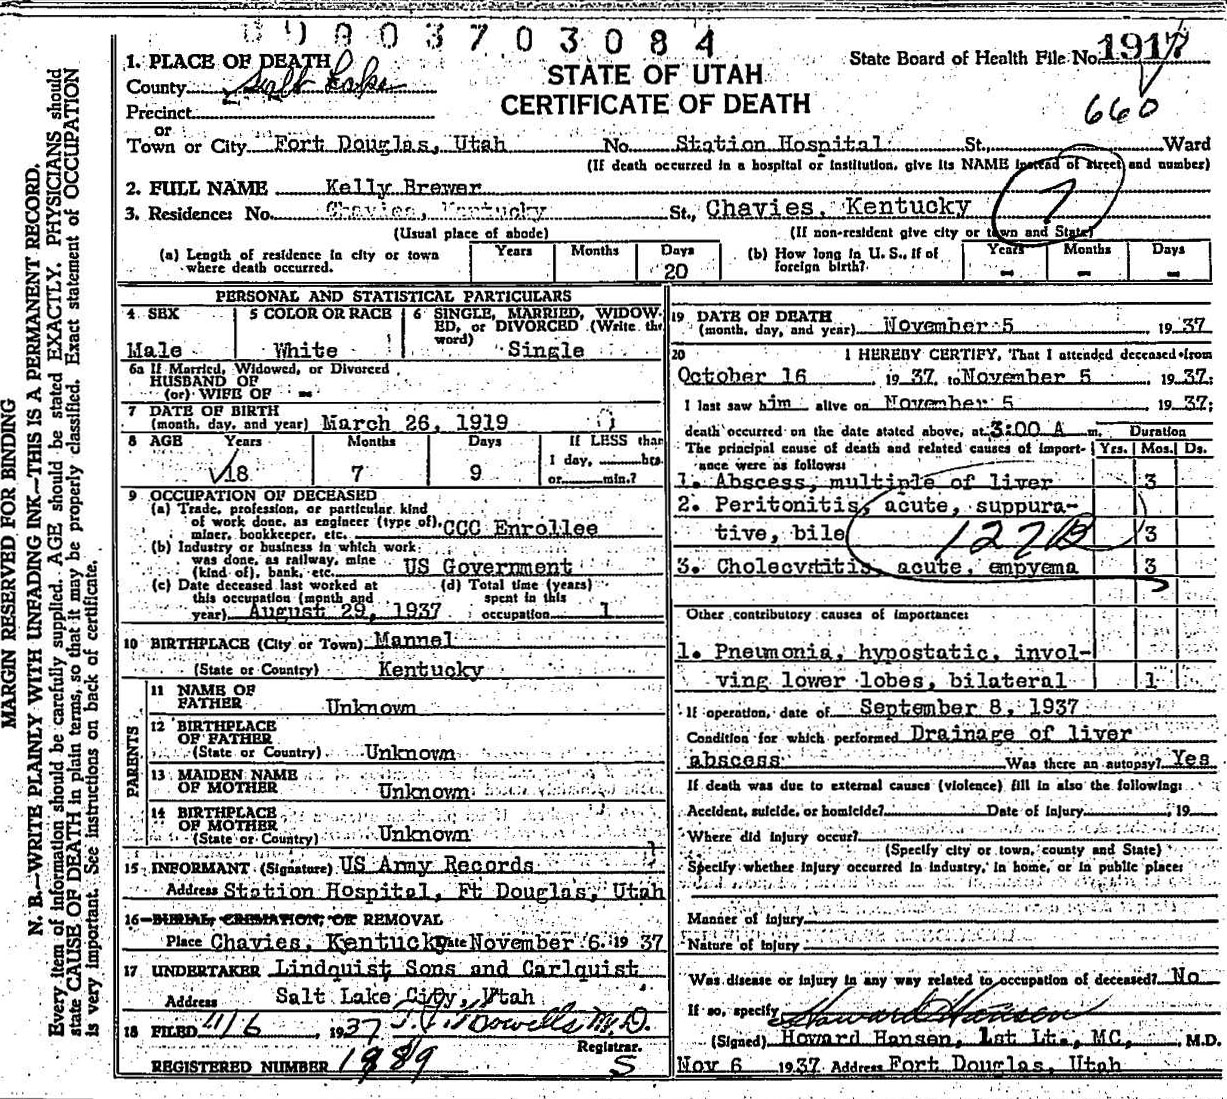 MARGIN RESERVED FOR BINDING
N. B.—WRITE PLAINLY WITH UNFADING INK—THIS IS A PERMANENT RECORD.
Every item of information should be carefully supplied. AGE should be stated EXACTLY. PHYSICIANS should
state CAUSE OF DEATH in plain terms, so that it may be properly classified. Exact statement of OCCUPATION
is very important. See instructions on back of certificate.
3 7 0 3 0 8 4
1. PLACE OF DEATH
County Salt Lake
Precinct
or
Town or City Fort Douglas, Utah No. Station Hospital St., Ward
(If death occurred in a hospital or institution, give its NAME instead of street and number)
STATE OF UTAH
CERTIFICATE OF DEATH
State Board of Health File No. 1917
660
2. FULL NAME Kelly Brewer
3. Residence: No. Chavies, Kentucky St., Chavies, Kentucky
?
(Usual place of abode) (If non-resident give city or town and State)
(a) Length of residence in city or town where death occurred. Years Months Days 20
(b) How long in U. S., if of foreign birth? Years - Months - Days -
PERSONAL AND STATISTICAL PARTICULARS
4 SEX Male
5 COLOR OR RACE White
6 SINGLE, MARRIED, WIDOWED, or DIVORCED (Write the word) Single
6a If Married, Widowed, or Divorced
HUSBAND OF
(or) WIFE OF -
7 DATE OF BIRTH
(month, day, and year) March 26, 1919
8 AGE Years 18 Months 7 Days 9 If LESS than 1 day, hrs. or min.?
9 OCCUPATION OF DECEASED
(a) Trade, profession, or particular kind
of work done, as engineer (type of),
miner, bookkeeper, etc. CCC Enrollee
(b) Industry or business in which work
was done, as railway, mine
(kind of), bank, etc. US Government
(c) Date deceased last worked at
this occupation (month and
year) August 29, 1937
(d) Total time (years)
spent in this
occupation 1
10 BIRTHPLACE (City or Town) Mannel
(State or Country) Kentucky
PARENTS
11 NAME OF
FATHER Unknown
12 BIRTHPLACE
OF FATHER
(State or Country) Unknown
13 MAIDEN NAME
OF MOTHER Unknown
14 BIRTHPLACE
OF MOTHER
(State or Country) Unknown
15 INFORMANT (Signature) US Army Records
Address Station Hospital, Ft Douglas, Utah
16 BURIAL, CREMATION, OR REMOVAL
Place Chavies, Kentucky Date November 6, 19 37
17 UNDERTAKER Lindquist Sons and Carlquist
Address Salt Lake City, Utah
18 FILED 11/6, 1937 M.D.
Registrar.
REGISTERED NUMBER 1989 S
19 DATE OF DEATH
(month, day, and year) November 5 19 37
20 I HEREBY CERTIFY, That I attended deceased from
October 16, 19 37, to November 5, 19 37;
I last saw him alive on November 5 19 37;
death occurred on the date stated above, at 3:00 A m. Duration
The principal cause of death and related causes of importance were as follows: Yrs. Mos. Ds.
1. Abscess, multiple of liver 3
2. Peritonitis, acute, suppura-
tive, bile 3
127B
3. Cholecystitis, acute, empyema 3
Other contributory causes of importance:
1. Pneumonia, hypostatic, invol-
ving lower lobes, bilateral 1
If operation, date of September 8, 1937
Condition for which performed Drainage of liver
abscess Was there an autopsy? Yes
If death was due to external causes (violence) fill in also the following:
Accident, suicide, or homicide? Date of Injury, 19
Where did injury occur?
(Specify city or town, county and State)
Specify whether injury occurred in industry, in home, or in public place:
Manner of injury
Nature of injury
Was disease or injury in any way related to occupation of deceased? No
If so, specify Howard Hansen
(Signed) Howard Hansen, 1st Lt., MC, M.D.
Nov 6 1937 Address Fort Douglas, Utah